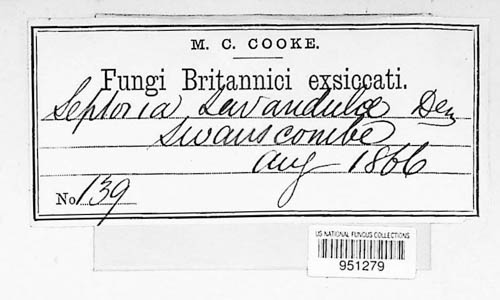 M. C. COOKE.
Fungi Britannici exsiccati.
Septoria Lavandulæ Dem
Swanscombe
Aug 1866
No. 139
US NATIONAL FUNGUS COLLECTIONS
951279